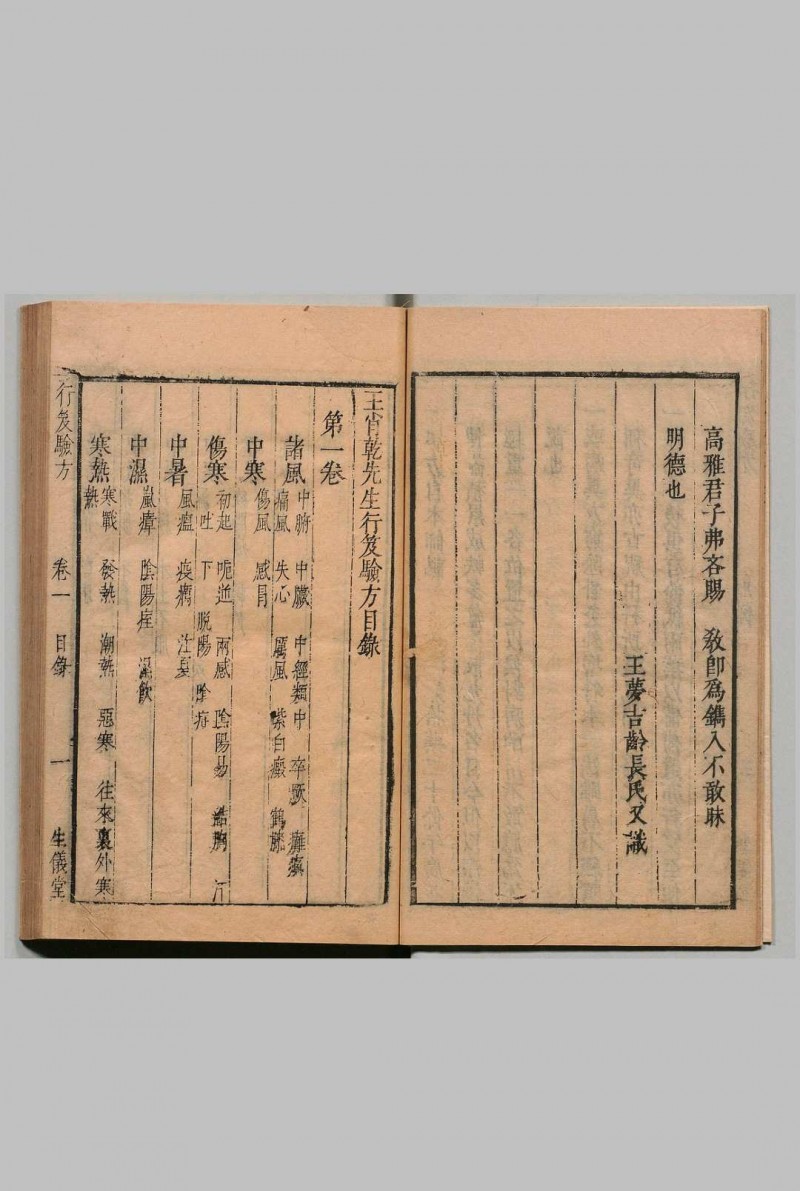 高雅君子弗吝賜　教卽為鐫入不敢昧
明德也
王夢吉齡長氏又識
王肯乾先生行笈驗方目錄
第一卷
諸風　中腑　中臟　中經類中　卒厥　癱瘓
痛風　失心　厲風　紫白癜　鶴膝
中寒　傷風　感冒
傷寒　初起　呃逆　兩感　陰陽易　結胸　汗
吐　下　脫陽
中暑　風瘟　疫癘　注夏
中濕　嵐瘴　陰陽　濕飲
寒熱　寒戰　發熱　潮熱　惡寒　往來裏外寒
熱
行笈驗方　卷一　目錄　一　生儀堂